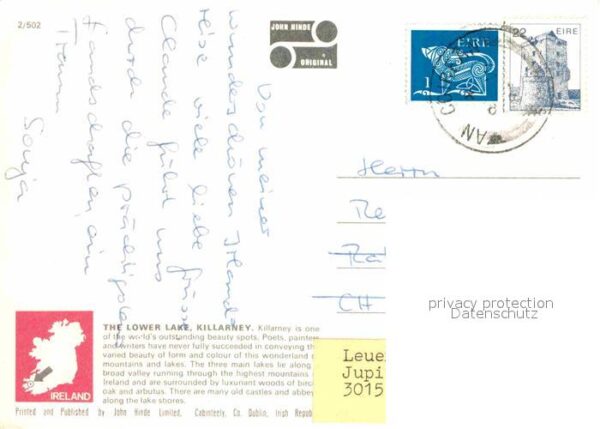 2/502
JOHN HINDE
ORIGINAL
EIRE
1
22
EIRE
AN
Von meiner
wunderschönen Irland-
reise viele liebe Grüsse
Claude führt uns
durch die prächtigsten
Landschaften, ein
Traum
Sonja
Herrn
Re
CH
privacy protection
Datenschutz
Leue
Jupi
3015
IRELAND
THE LOWER LAKE, KILLARNEY. Killarney is one
of the world's outstanding beauty spots. Poets, painters
and writers have never fully succeeded in conveying th
varied beauty of form and colour of this wonderland o
mountains and lakes. The three main lakes lie along
broad valley running through the highest mountains i
Ireland and are surrounded by luxuriant woods of birch
oak and arbutus. There are many old castles and abbey
along the lake shores.
Printed and Published by John Hinde Limited, Cabinteely, Co. Dublin, Irish Repub